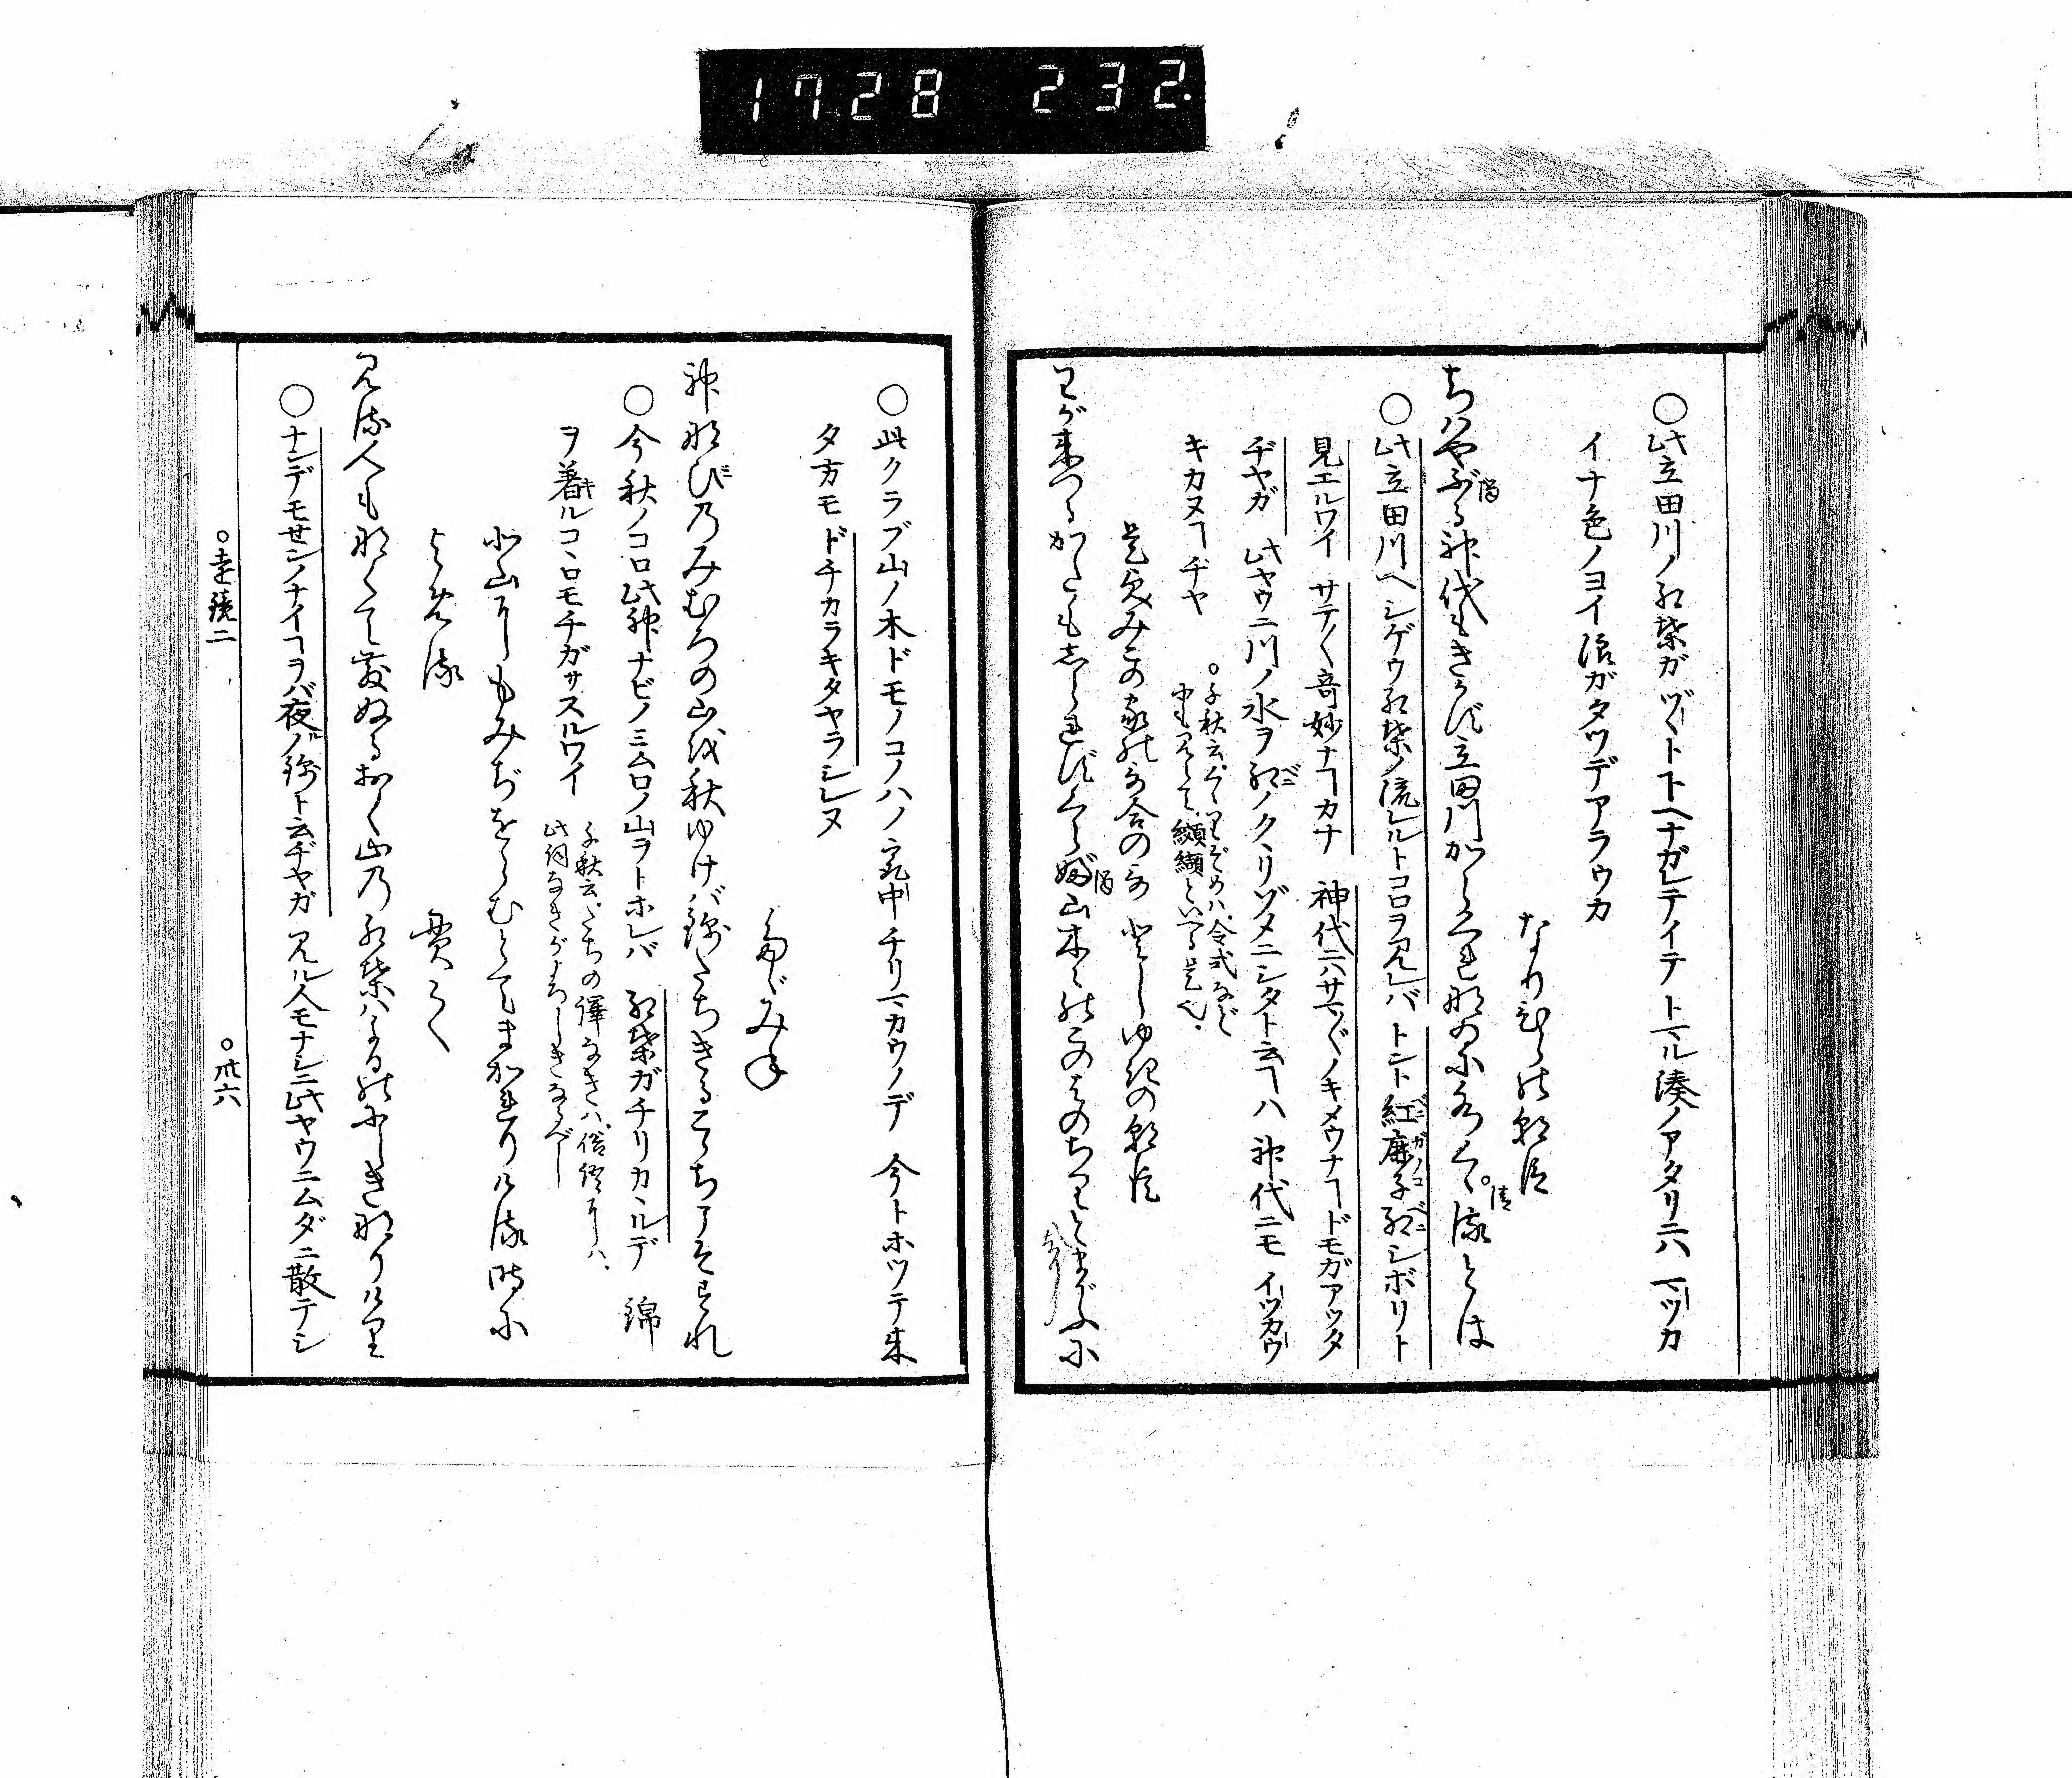 1728 232.
○此立田川ノ紅葉ガヅヽト下ヘナガレテイテトマル湊ノアタリニハ マツカ
イナ色ノヨイ浪ガタツデアラウカ
なりひらの朝臣
ちはやぶる神代もきかず立田川からくれなゐに水くゝるとは
○此立田川ヘシゲウ紅葉ノ流レルトコロヲ見レバ トント紅鹿子紅シボリト
見エルワイ サテ〳〵奇妙ナヿカナ 神代ニハサマ〴〵ノキメウナヿドモガアツタ
ヂヤガ 此ヤウニ川ノ水ヲ紅ノクヽリゾメニシタト云ヿハ 神代ニモ イツカウ
キカヌヿヂヤ
○千秋云、くゝりぞめハ、令式など
に、纐纈といへる是也、
是貞みこの家の哥合の哥 としゆきの朝臣
わがきつるかたもしられずくらぶ山木ゞのこのはのちるとまがふに
○此クラブ山ノ木ドモノコノハノ 乱レ チリマカウノデ 今トホツテ来
タ方モ ドチカラキタヤラシレヌ
たゞみね
神なびのみむろの山を秋ゆけば錦たちきるこゝちこそすれ
○今秋ノコロ此神ナビノミムロノ山ヲトホレバ 紅葉ガチリカヽルデ 錦
ヲ着ルコヽロモチガサスルワイ
千秋云、たちの譯なきハ、俗語にハ、
此詞なきがよろしきなるべし
北山にもみぢをらむとてまかれりける時に
よめる
貫之
見る人もなくて散ぬるおく山の紅葉はよるのにしきなりけり
○ナンデモセンノナイヿヲバ夜ルノ錦ト云ヂヤガ 見ル人モナシニ此ヤウニムダニ散テシ
○遠鏡二
○卅六